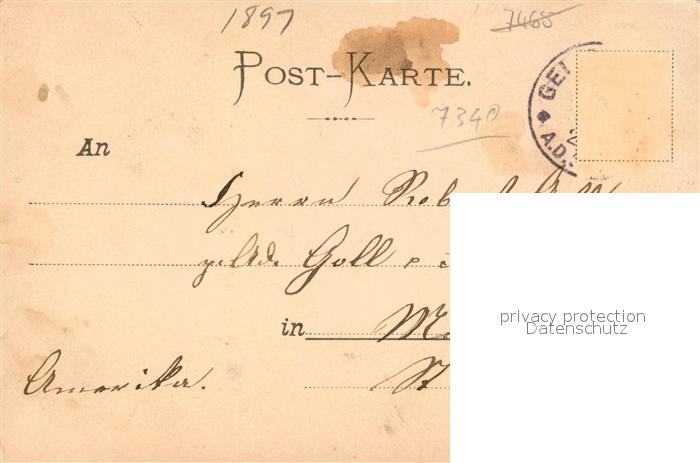 1897
7465
POST-KARTE.
GEI
A.D.
7340
An
Herrn
p. Ad. Goll
in M
St
Amerika.
privacy protection
Datenschutz